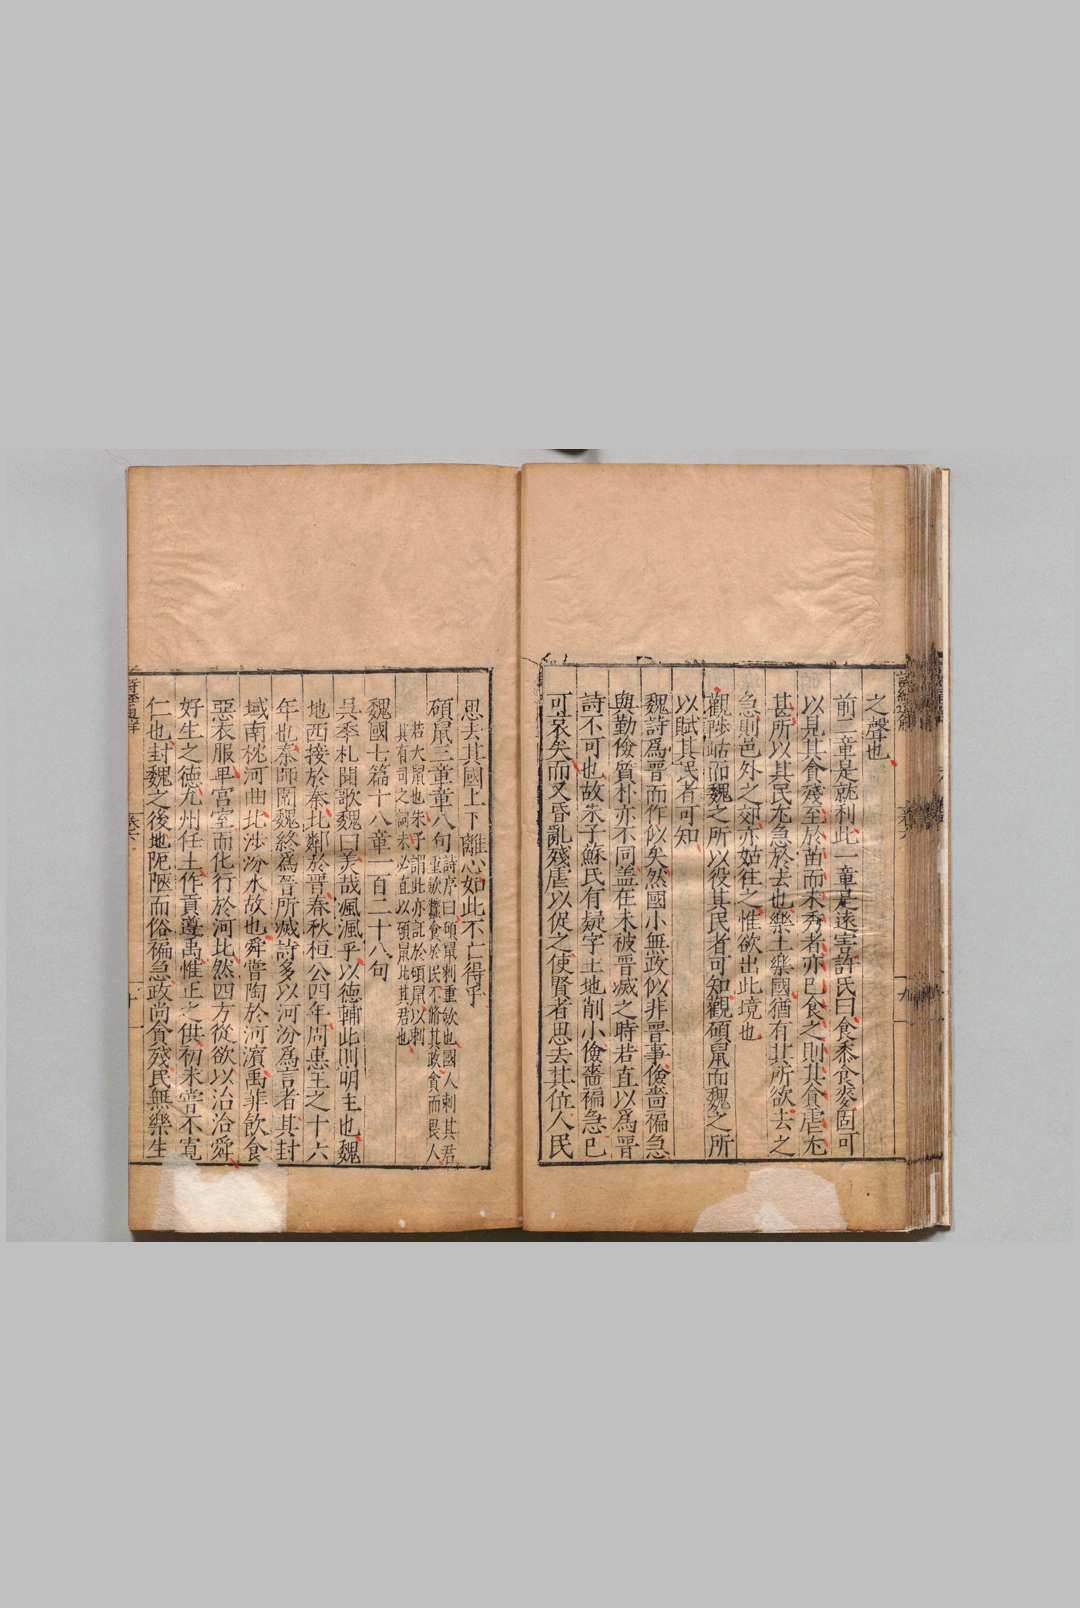 之聲也
前二章是就利此一章是遠害許氏曰食黍食麥固可
以見其食殘至於苗而未秀者亦已食之則其食虐尤
甚所以其民尤急於去也樂土樂國猶有其所欲去之
急則邑外之郊亦姑往之惟欲出此境也
觀陟岵而魏之所以役其民者可知觀碩鼠而魏之所
以賦其民者可知
魏詩爲晋而作似矣然國小無政似非晋事儉嗇褊急
與勤儉質朴亦不同盖在未被晋滅之時若直以爲晋
詩不可也故朱子蘇氏有疑字土地削小儉嗇褊急已
可哀矣而又昏亂殘虐以促之使賢者思去其位人民
思去其國上下離心如此不亡得乎
碩鼠三章章八句 詩序曰碩鼠刺重歛也國人刺其君
重歛蠶食於民不脩其政貪而畏人
若大鼠也朱子謂此亦託於碩鼠以刺
其有司之詞未必直以碩鼠比其君也
魏國七篇十八章一百二十八句
吳季札聞歌魏曰美哉渢渢乎以德輔此則明主也魏
地西接於秦北鄰於晋春秋桓公四年周惠王之十六
年也秦師圍魏終爲晉所滅詩多以河汾爲言者其封
域南枕河曲北涉汾水故也舜嘗陶於河濱禹菲飲食
惡衣服卑宮室而化行於河北然四方從欲以治洽舜
好生之德九州任土作貢遵禹惟正之供初未嘗不寬
仁也封魏之後地阨陋而俗褊急政尚貪殘民無樂生